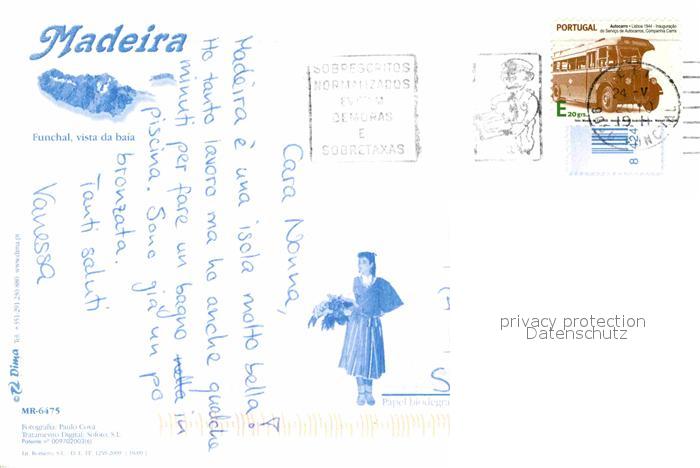 Madeira
Funchal, vista da baía
Cara Nonna,
Madeira è una isola molto bella!
Ho tanto lavoro ma ho anche qualche
minuti per fare un bagno nella in
piscina. Sono già un po
bronzata.
Tanti saluti
Vanessa
SOBRESCRITOS
NORMALIZADOS
EVITAM
DEMORAS
E
SOBRETAXAS
PORTUGAL
Autocarro • Lisboa 1944 - Inauguração
do Serviço de Autocarros, Companhia Carris
E 20 grs.
24 -V
19
8 424
privacy protection
Datenschutz
Papel biodegra
© Dima Tel. + 351 291 230 880 www.dima.pt
MR-6475
Fotografia: Paulo Cova
Tratamento Digital: Sofoto, S.L.
Patente nº 009702003(6)